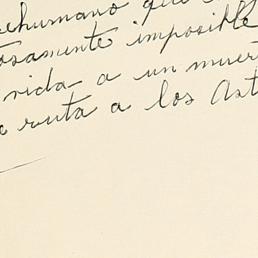 ehumano que
osamente imposible
vida a un muer
ruta a los Ast